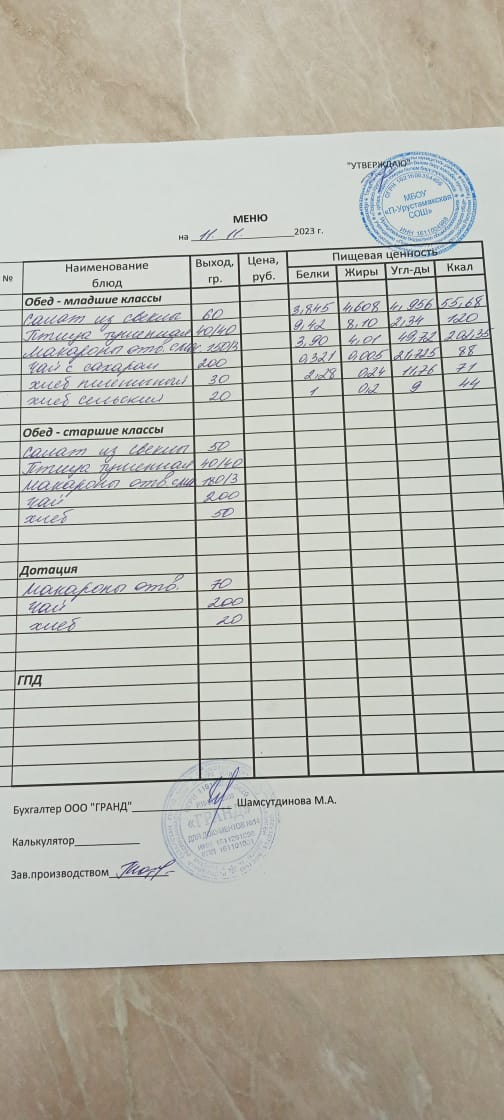 "УТВЕРЖДАЮ"
МБОУ
«П-Урустамакская
СОШ»
МЕНЮ
на 11. 11. 2023 г.
№ Наименование блюд Выход, гр. Цена, руб. Пищевая ценность
Белки Жиры Угл-ды Ккал
Обед - младшие классы
салат из свеклы 60 3,845 4,608 4,956 55,68
Птица тушенная 40/40 9,42 8,10 2,34 120
макароны отв. 150/3 3,90 4,01 49,72 202,35
чай с сахаром 200 0,321 0,005 21,725 88
хлеб пшеничный 30 2,28 0,24 11,76 71
хлеб сельский 20 1 0,2 9 44
Обед - старшие классы
салат из свеклы 50
Птица тушенная 40/40
макароны отв 180/3
чай 200
хлеб 50
Дотация
макароны отв. 70
чай 200
хлеб 20
ГПД
Бухгалтер ООО "ГРАНД" Шамсутдинова М.А.
«ГРАНД»
ДЛЯ ДОКУМЕНТОВ
Калькулятор
Зав.производством